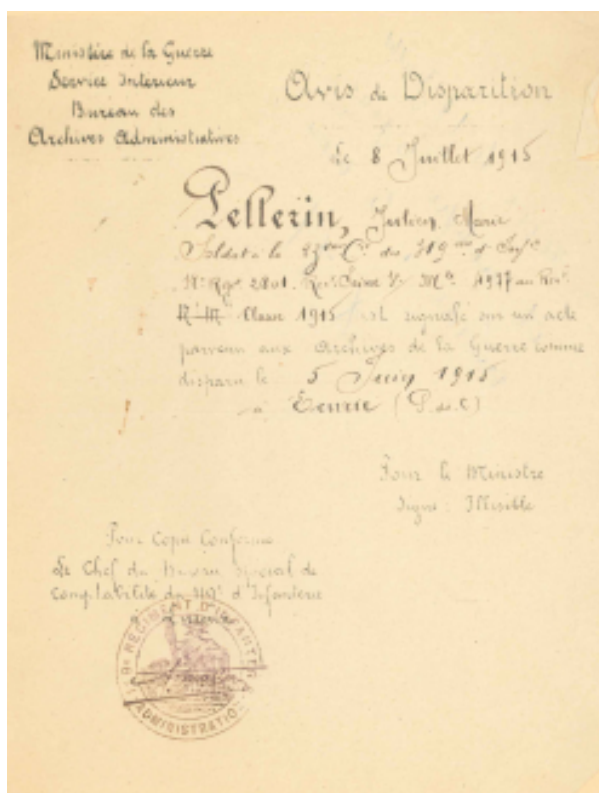 Ministère de la Guerre
Service Interieur
Bureau des
Archives Administratives
Avis de Disparition
Le 8 Juillet 1915
Pellerin, Marie
Soldat à la 23eme Cie du 319me d'Infie
Classe 1915 est signalé sur un acte
parvenu aux Archives de la Guerre comme
disparu le 5 Juin 1915
à Ecurie (P. de C)
Pour le Ministre
Signé : Illisible
Pour Copie Conforme
Le Chef du Bureau Spécial de
comptabilité du 119e d'Infanterie
REGIMENT D'INFANTERIE
ADMINISTRATION